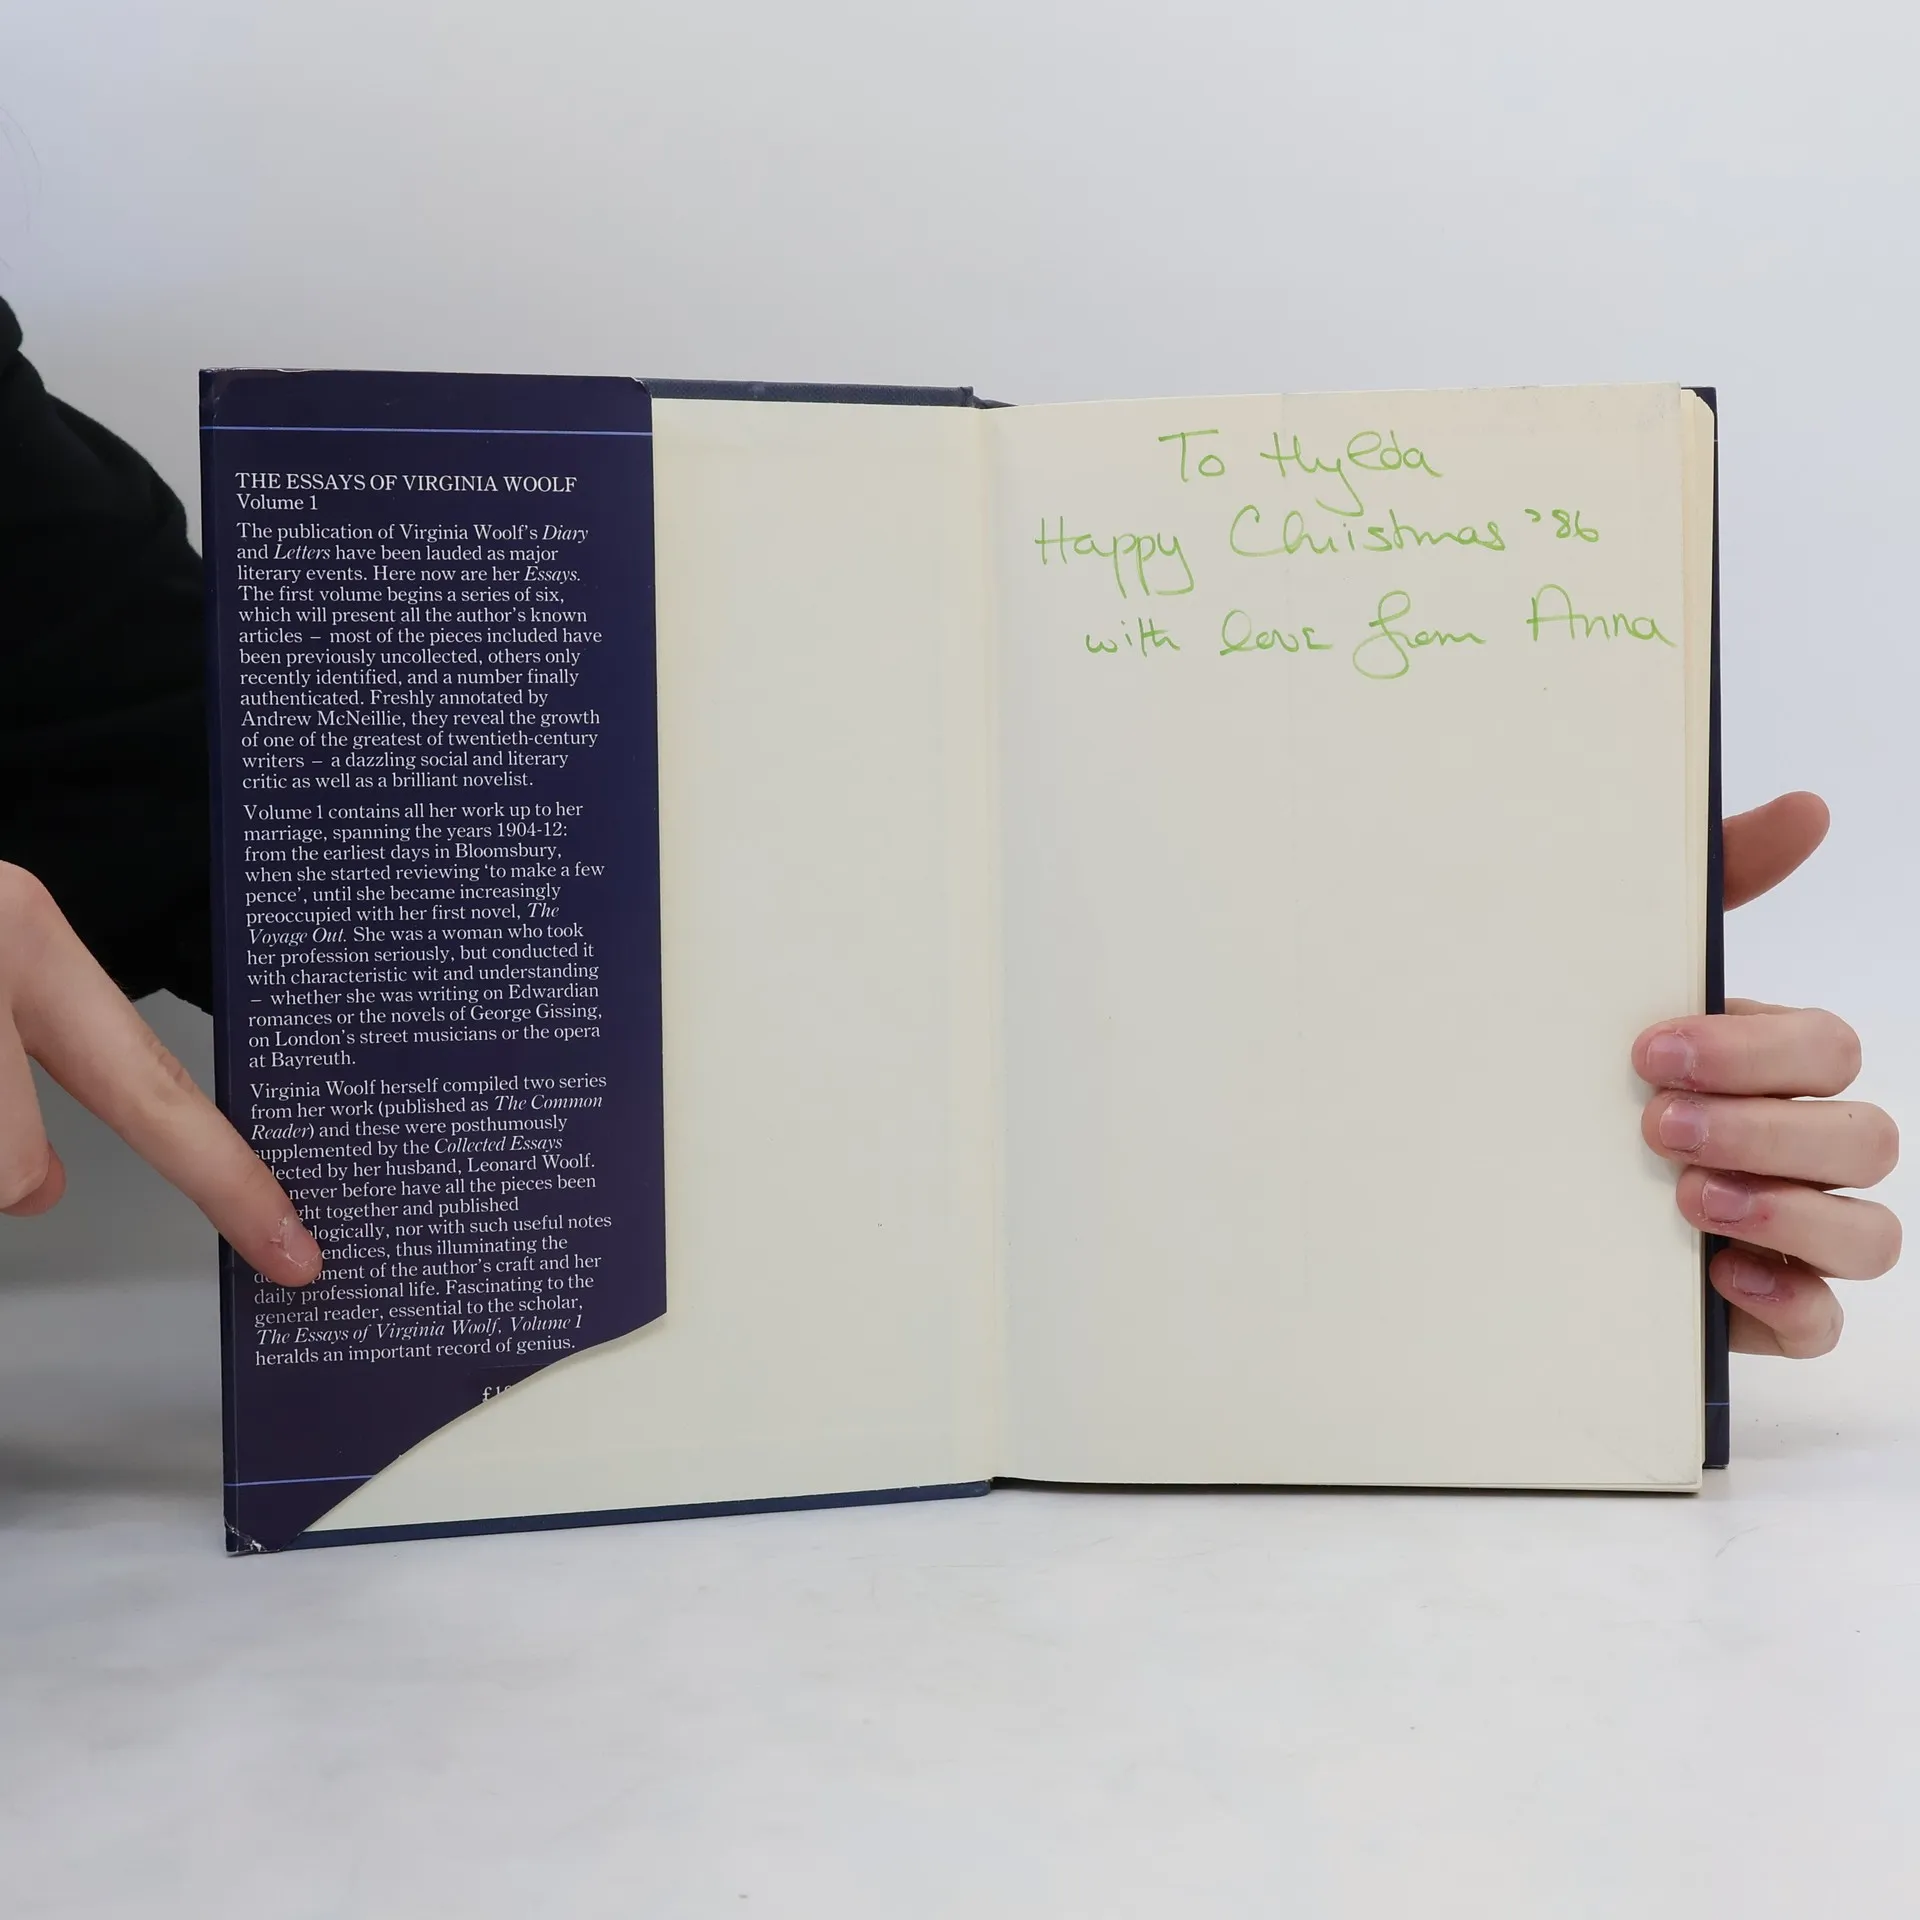 THE ESSAYS OF VIRGINIA WOOLF
Volume 1
The publication of Virginia Woolf's Diary
and Letters have been lauded as major
literary events. Here now are her Essays.
The first volume begins a series of six,
which will present all the author's known
articles – most of the pieces included have
been previously uncollected, others only
recently identified, and a number finally
authenticated. Freshly annotated by
Andrew McNeillie, they reveal the growth
of one of the greatest of twentieth-century
writers – a dazzling social and literary
critic as well as a brilliant novelist.
Volume 1 contains all her work up to her
marriage, spanning the years 1904-12:
from the earliest days in Bloomsbury,
when she started reviewing 'to make a few
pence', until she became increasingly
preoccupied with her first novel, The
Voyage Out. She was a woman who took
her profession seriously, but conducted it
with characteristic wit and understanding
– whether she was writing on Edwardian
romances or the novels of George Gissing,
on London's street musicians or the opera
at Bayreuth.
Virginia Woolf herself compiled two series
from her work (published as The Common
Reader) and these were posthumously
supplemented by the Collected Essays
lected by her husband, Leonard Woolf.
never before have all the pieces been
ght together and published
ologically, nor with such useful notes
endices, thus illuminating the
pment of the author's craft and her
daily professional life. Fascinating to the
general reader, essential to the scholar,
The Essays of Virginia Woolf, Volume 1
heralds an important record of genius.
To Hylda
Happy Christmas '86
with love from Anna